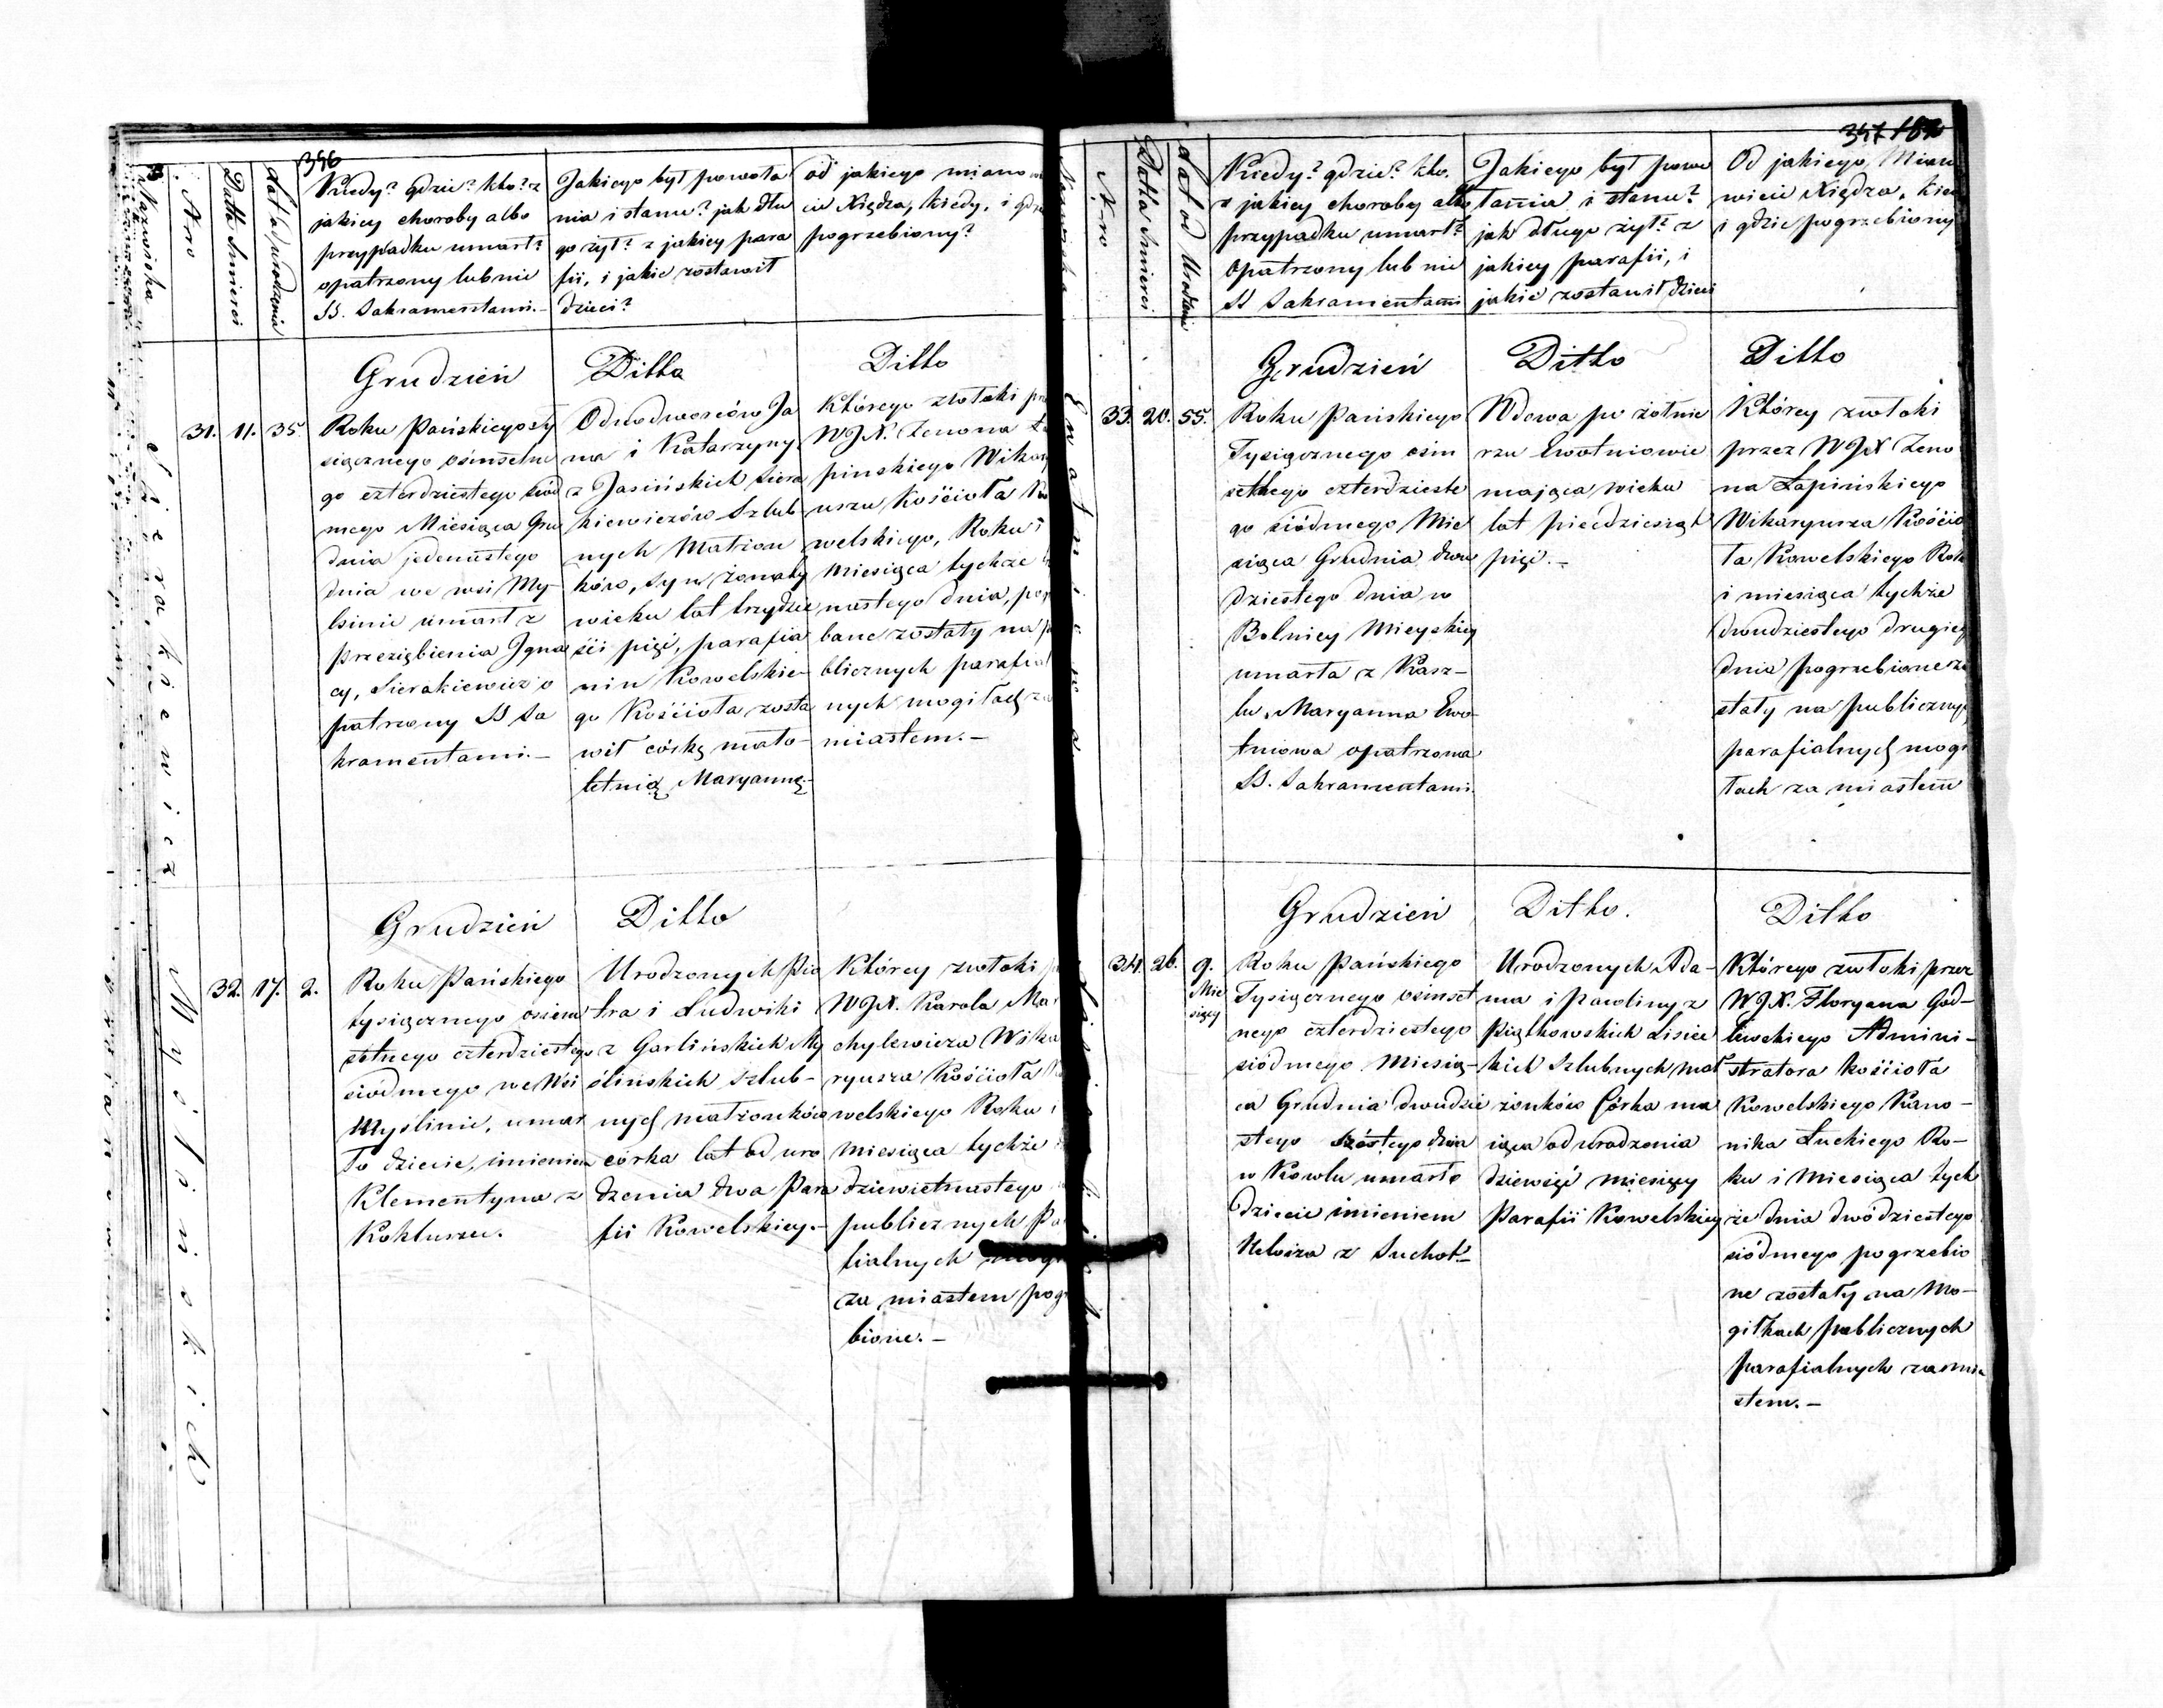 356
Nazwiska
Nro
Data Smierci
Lat od urodzenia
Kiedy? gdzie? kto? z
jakiey choroby albo
przypadku umarł?
opatrzony lub nie
SS. Sakramentami.-
Jakiego był powoła
nia i stanu? jak dłu
go żył? z jakiey para
fii, i jakie zostawił
dzieci?
od jakiego miano
cie Xiędza, kiedy, i gdzie
pogrzebiony?
Sierakiewicz
31.
11.
35.
Grudzień
Roku Pańskiego ty
siącznego ośmsetne
go czterdziestego siód
mego Miesiąca Gru
dnia jedenastego
dnia we wsi My
lsinie umarł z
przeziębienia Igna
cy, Sierakiewicz o
patrzony SS Sa
kramentami.-
Ditto
Odnodworców Ja
na i Katarzyny
z Jasińskich Siera
kiewiczów Szlub
nych Małżon
ków, syn żonaty
wieku lat trzydzie
ści pięć, parafia
nin Kowelskie
go Kościoła zosta
wił córkę mało-
letnią Maryannę.-
Ditto
Którego zwłoki
WJX. Zenona
pinskiego Wikar
usza Kościoła
welskiego, Roku i
Miesiąca tychże
nastego dnia,
bane zostały na
blicznych parafial
nych mogiłach
miastem.-
Myślińskich
32.
17.
2.
Grudzień
Roku Pańskiego
tysiącznego osiem
setnego czterdziestego
siódmego we Wsi
Myślinie, umar
ło dziecie, imieniem
Klementyna z
Kokluszu.
Ditto
Urodzonych Pio
tra i Ludwiki
z Garlińskich My
ślińskich szlub-
nych małżonków
córka lat od uro
dzenia dwa Para
fii Kowelskiey.-
Którey zwłoki
WJX. Karola Mar
chylewicza Wika
ryusza Kościoła
welskiego Roku i
miesiąca tychże
dziewietnastego
publicznych Pa
fialnych mogi
za miastem pog
bione.-
357
Nro
Data Smierci
Lat od Urodzenia
Kiedy? gdzie? kto.
z jakiey choroby albo
przypadku umarł?
Opatrzony lub nie
SS Sakramentami
Jakiego był powo
łania i stanu?
jak długo żył? z
jakiey parafii, i
jakie zostawił dzieci
Od jakiego, Miano
wicie Xiędza, kied
i gdzie pogrzebiony
33.
20.
55.
Grudzień
Roku Pańskiego
Tysiącznego ośm
setnego czterdzieste
go siódmego Mie
siąca Grudnia dwu
dziestego dnia w
Bolnicy Mieyskiey
umarła z Kasz-
lu, Maryanna Ewo-
tniowa opatrzona
SS. Sakramentami.
Ditto
Wdowa po żołnie
rzu Ewotniowie
mająca wieku
lat piećdziesiąt
pięć.-
Ditto
Którey zwłoki
przez WJX Zeno
na Łapińskiego
Wikaryusza Kościo
ła Kowelskiego Roku
i miesiąca tychże
dwudziestego drugieg
dnia pogrzebione zo
stały na publicznyc
parafialnych mogi
łach za miastem
34.
26.
9.
Mie
sięcy
Grudzień
Roku Pańskiego
Tysiącznego ośmset
nego czterdziestego
siódmego Miesią-
ca Grudnia dwudzie
stego szóstego dnia
w Kowlu umarło
dziecie imieniem
Heloiza z Suchot.-
Ditto.
Urodzonych Ada-
ma i Pauliny z
Piątkowskich Lisiec
kich Szlubnych mał
żonków Córka ma
iąca od urodzenia
dziewięć miesięcy
Parafii Kowelskiey
Ditto
Którego zwłoki przez
WJX. Floryana God-
lewskiego Admini-
stratora Kościoła
Kowelskiego Kano-
nika Łuckiego Ro-
ku i Miesiąca tych
że dnia dwódziestego
siódmego pogrzebio
ne zostały na Mo-
giłkach publicznych
parafialnych za mia
stem.-